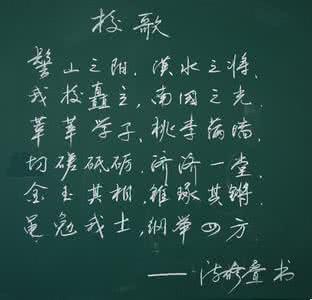 校歌
鬐山之阳,漠水之将,
我校矗立,南国之光,
莘莘学子,桃李荫墙,
切磋砥砺,济济一堂,
金玉其相,雕琢其锵,
黾勉我士,纲举四方
——书